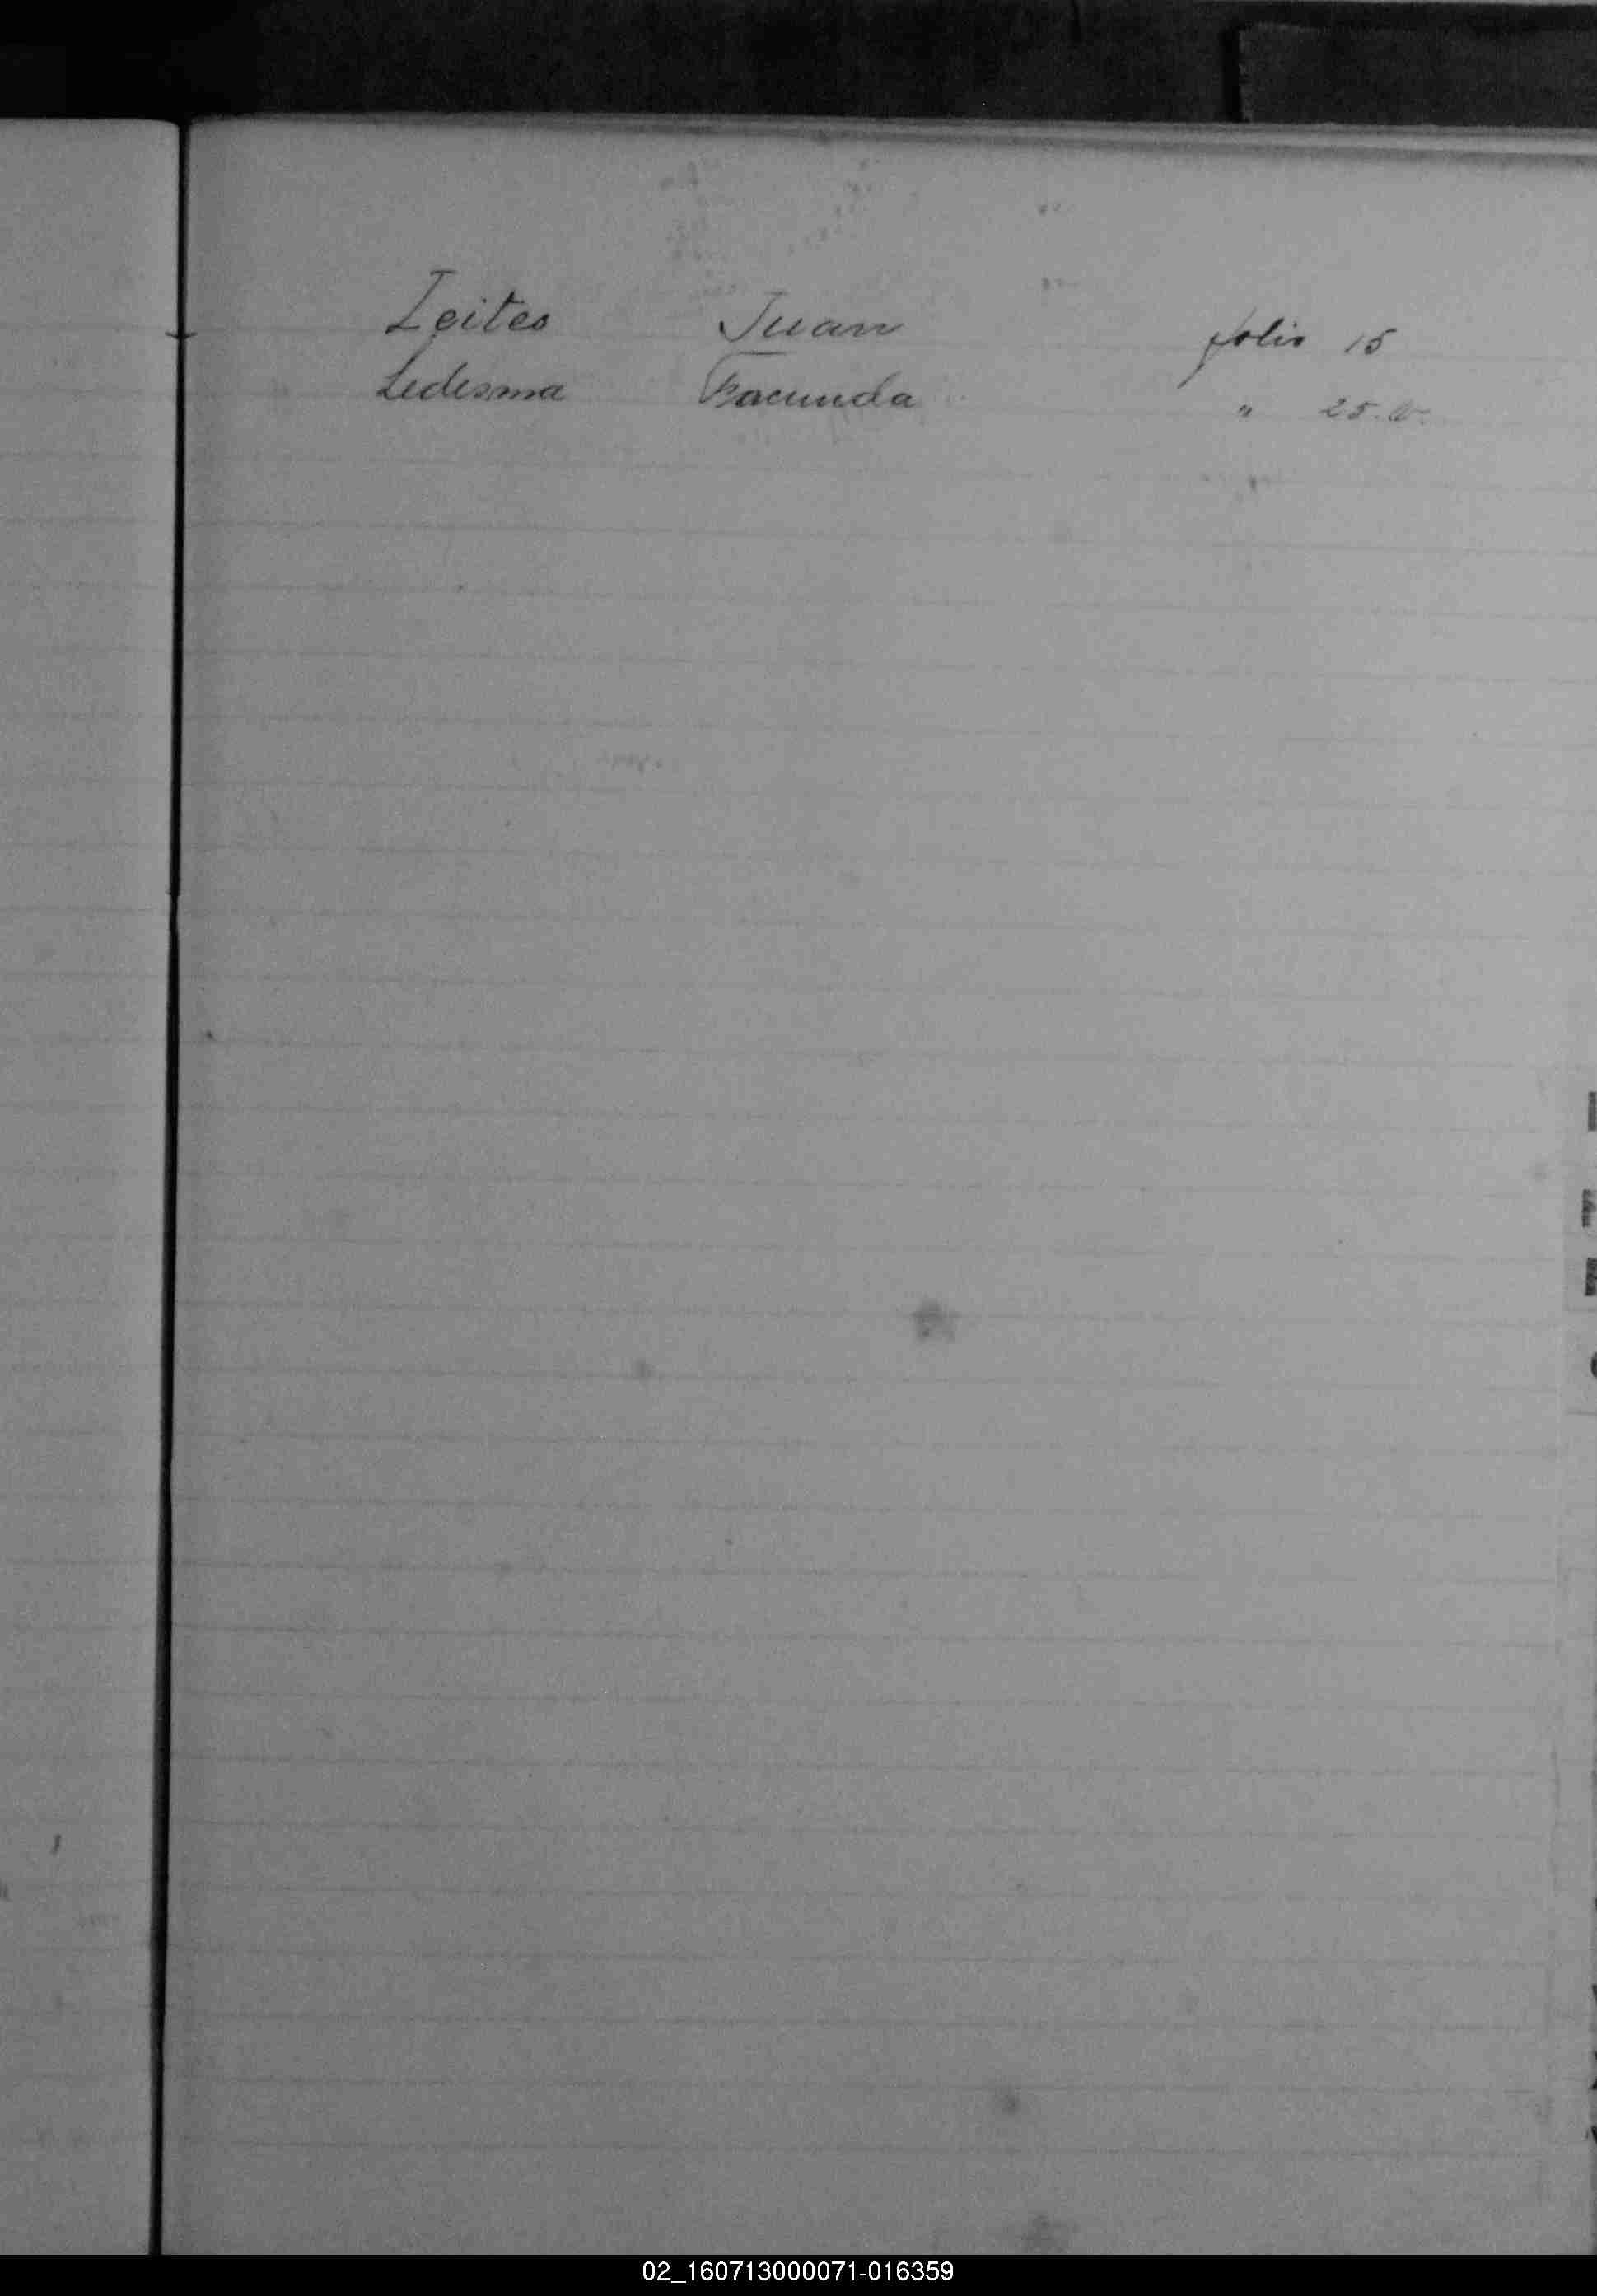 Leites Juan folio 15
Ledesma Facunda " 25.
02_160713000071-016359